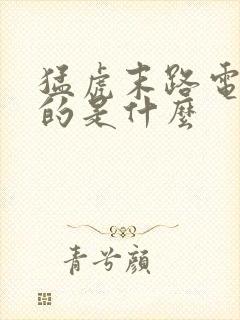 猛虎末路電
的是什麼
青兮顔